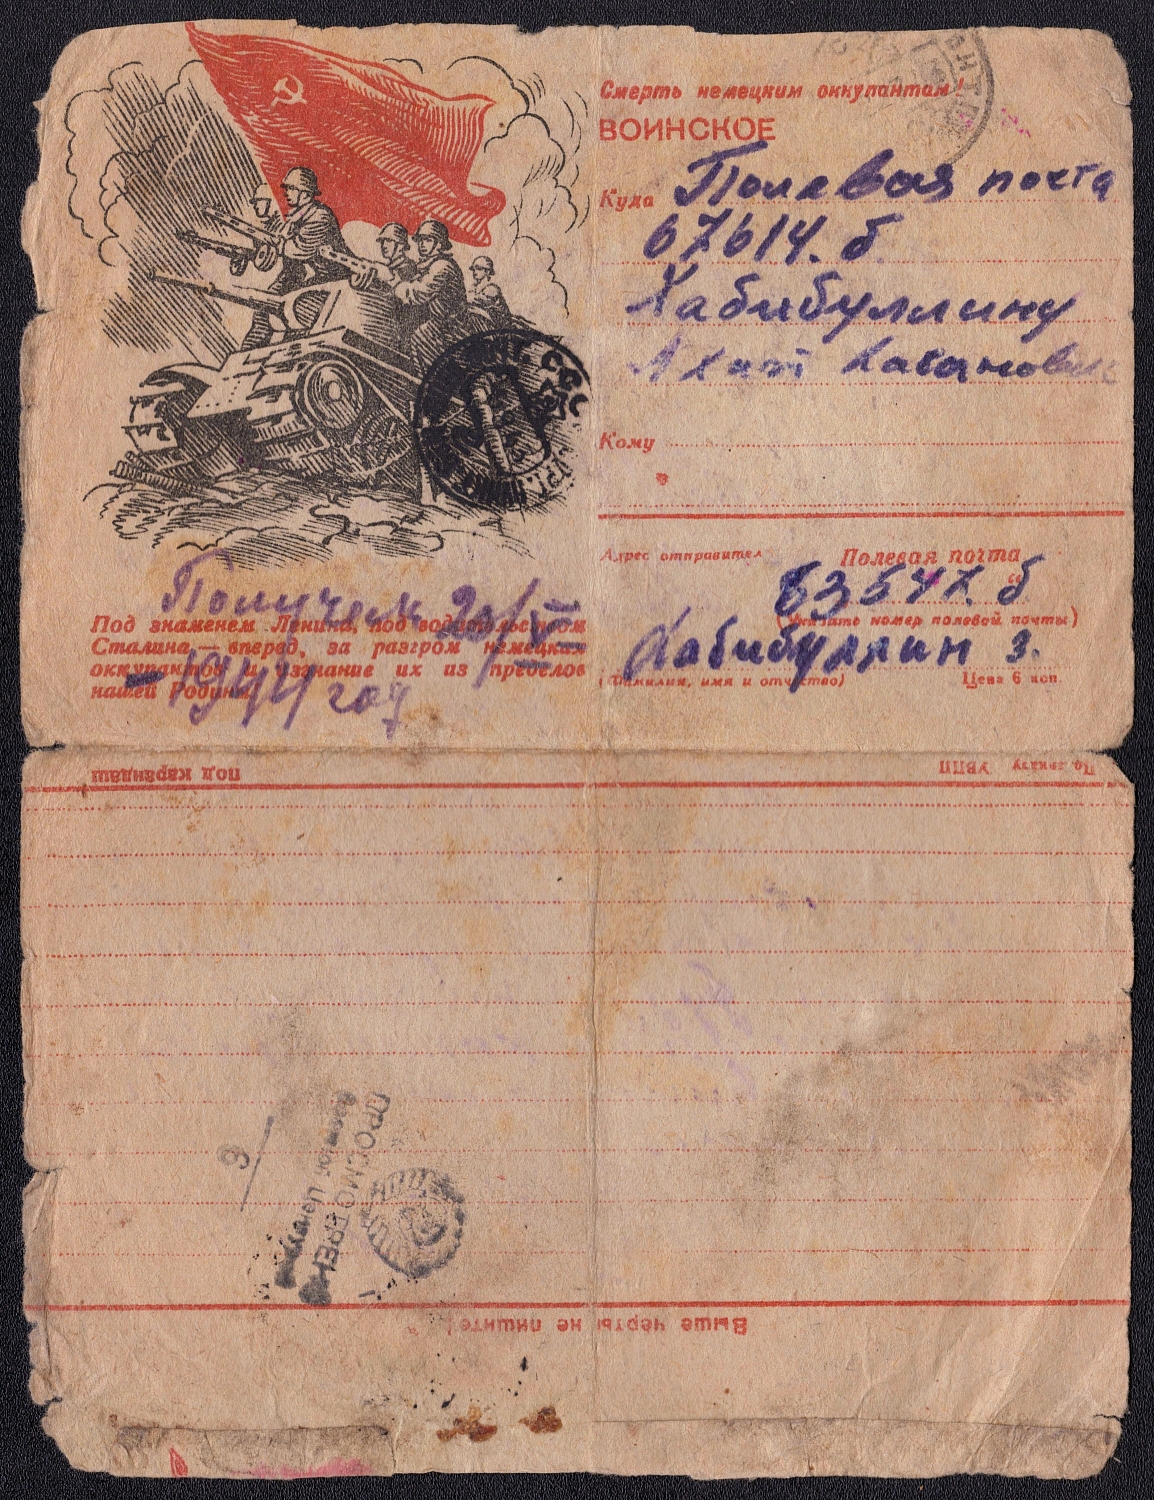 Смерть немецким оккупантам!
ВОИНСКОЕ
Куда Полевая почта
67614. б
Хабибуллину
Кому
Адрес отправителя Полевая почта
63547. б
(Указать номер полевой почты)
Хабибуллин З.
(Фамилия, имя и отчество) Цена 6 коп.
Получен 20/VI
1944 год
Под знаменем Ленина, под водительством
Сталина — вперед, за разгром немецких
оккупантов и изгнание их из пределов
нашей Родины!
под карандаш
УВПП
ПРОСМОТРЕНО
Военной Цензурой
Выше черты не пишите!